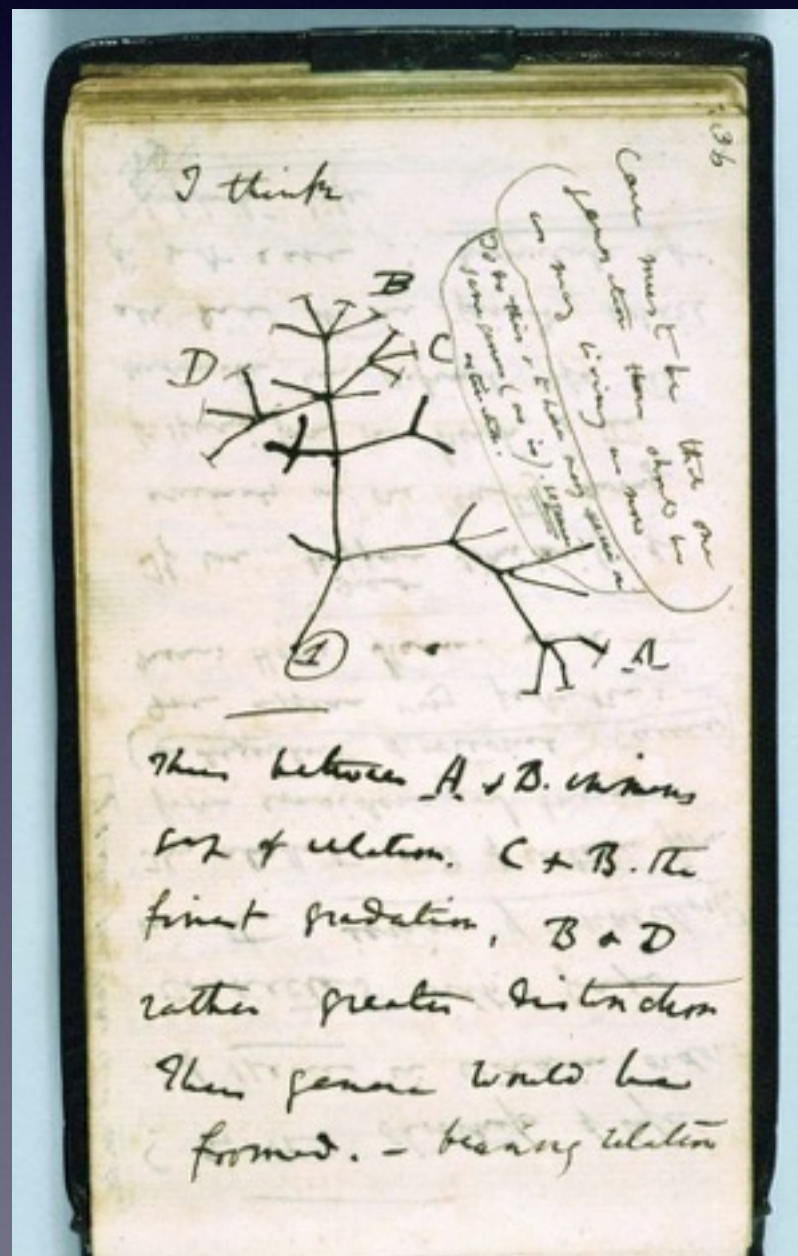 I think
36
Case must be that one
generation then should be
as many living as now
To do this & to have many species in
same genus (as is). requires
extinction.
B
C
D
A
1
Thus between A & B. immens
gap of relation. C & B. the
finest gradation, B & D
rather greater distinction
Thus genera would be
formed. - bearing relation